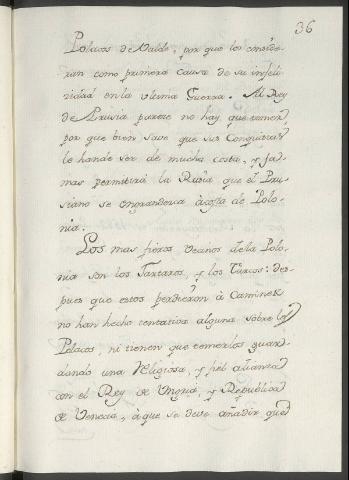 36
Polacos de Valde, por que los conside-
ran como primera causa de su infeli-
cidad en la ultima Guerra. Al Rey
de Prusia parece no hay que temer,
por que bien save que sus Conquistas
le hande ser de mucha costa, y ja-
mas permitirá la Rusia que el Pru-
siano se engrandesca àcosta de Polo-
nia.
Los mas fieros vecinos dela Polo-
nia son los Tartaros, y los Turcos: des-
pues que estos perdieron à Caminek
no han hecho tentativa alguna sobre los
Polacos, ni tienen que temerlos guar-
dando una Religiosa, y fiel alianza
con el Rey de Ungria, y Republica
de Venecia, à que se deve añadir que